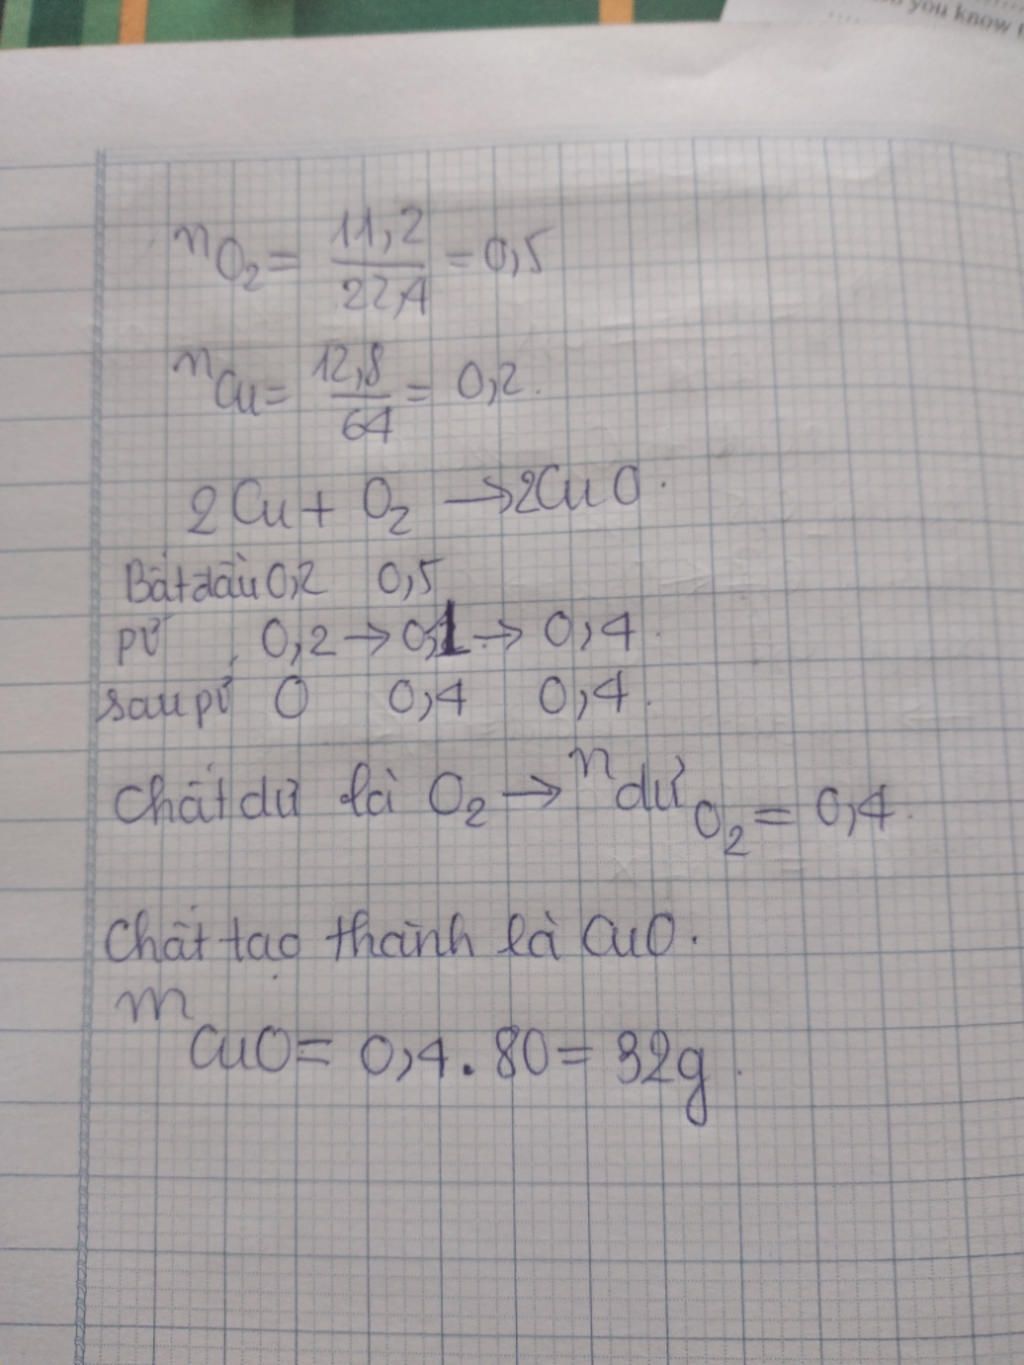 you know
nO₂ = 11,2/22,4 = 0,5
nCu = 12,8/64 = 0,2.
2Cu + O₂ → 2CuO.
Bắt đầu 0,2 0,5
pứ 0,2 → 0,1 → 0,4.
sau pứ 0 0,4 0,4.
Chất dư là O₂ → n dư O₂ = 0,4.
Chất tạo thành là CuO.
mCuO = 0,4 . 80 = 32g.